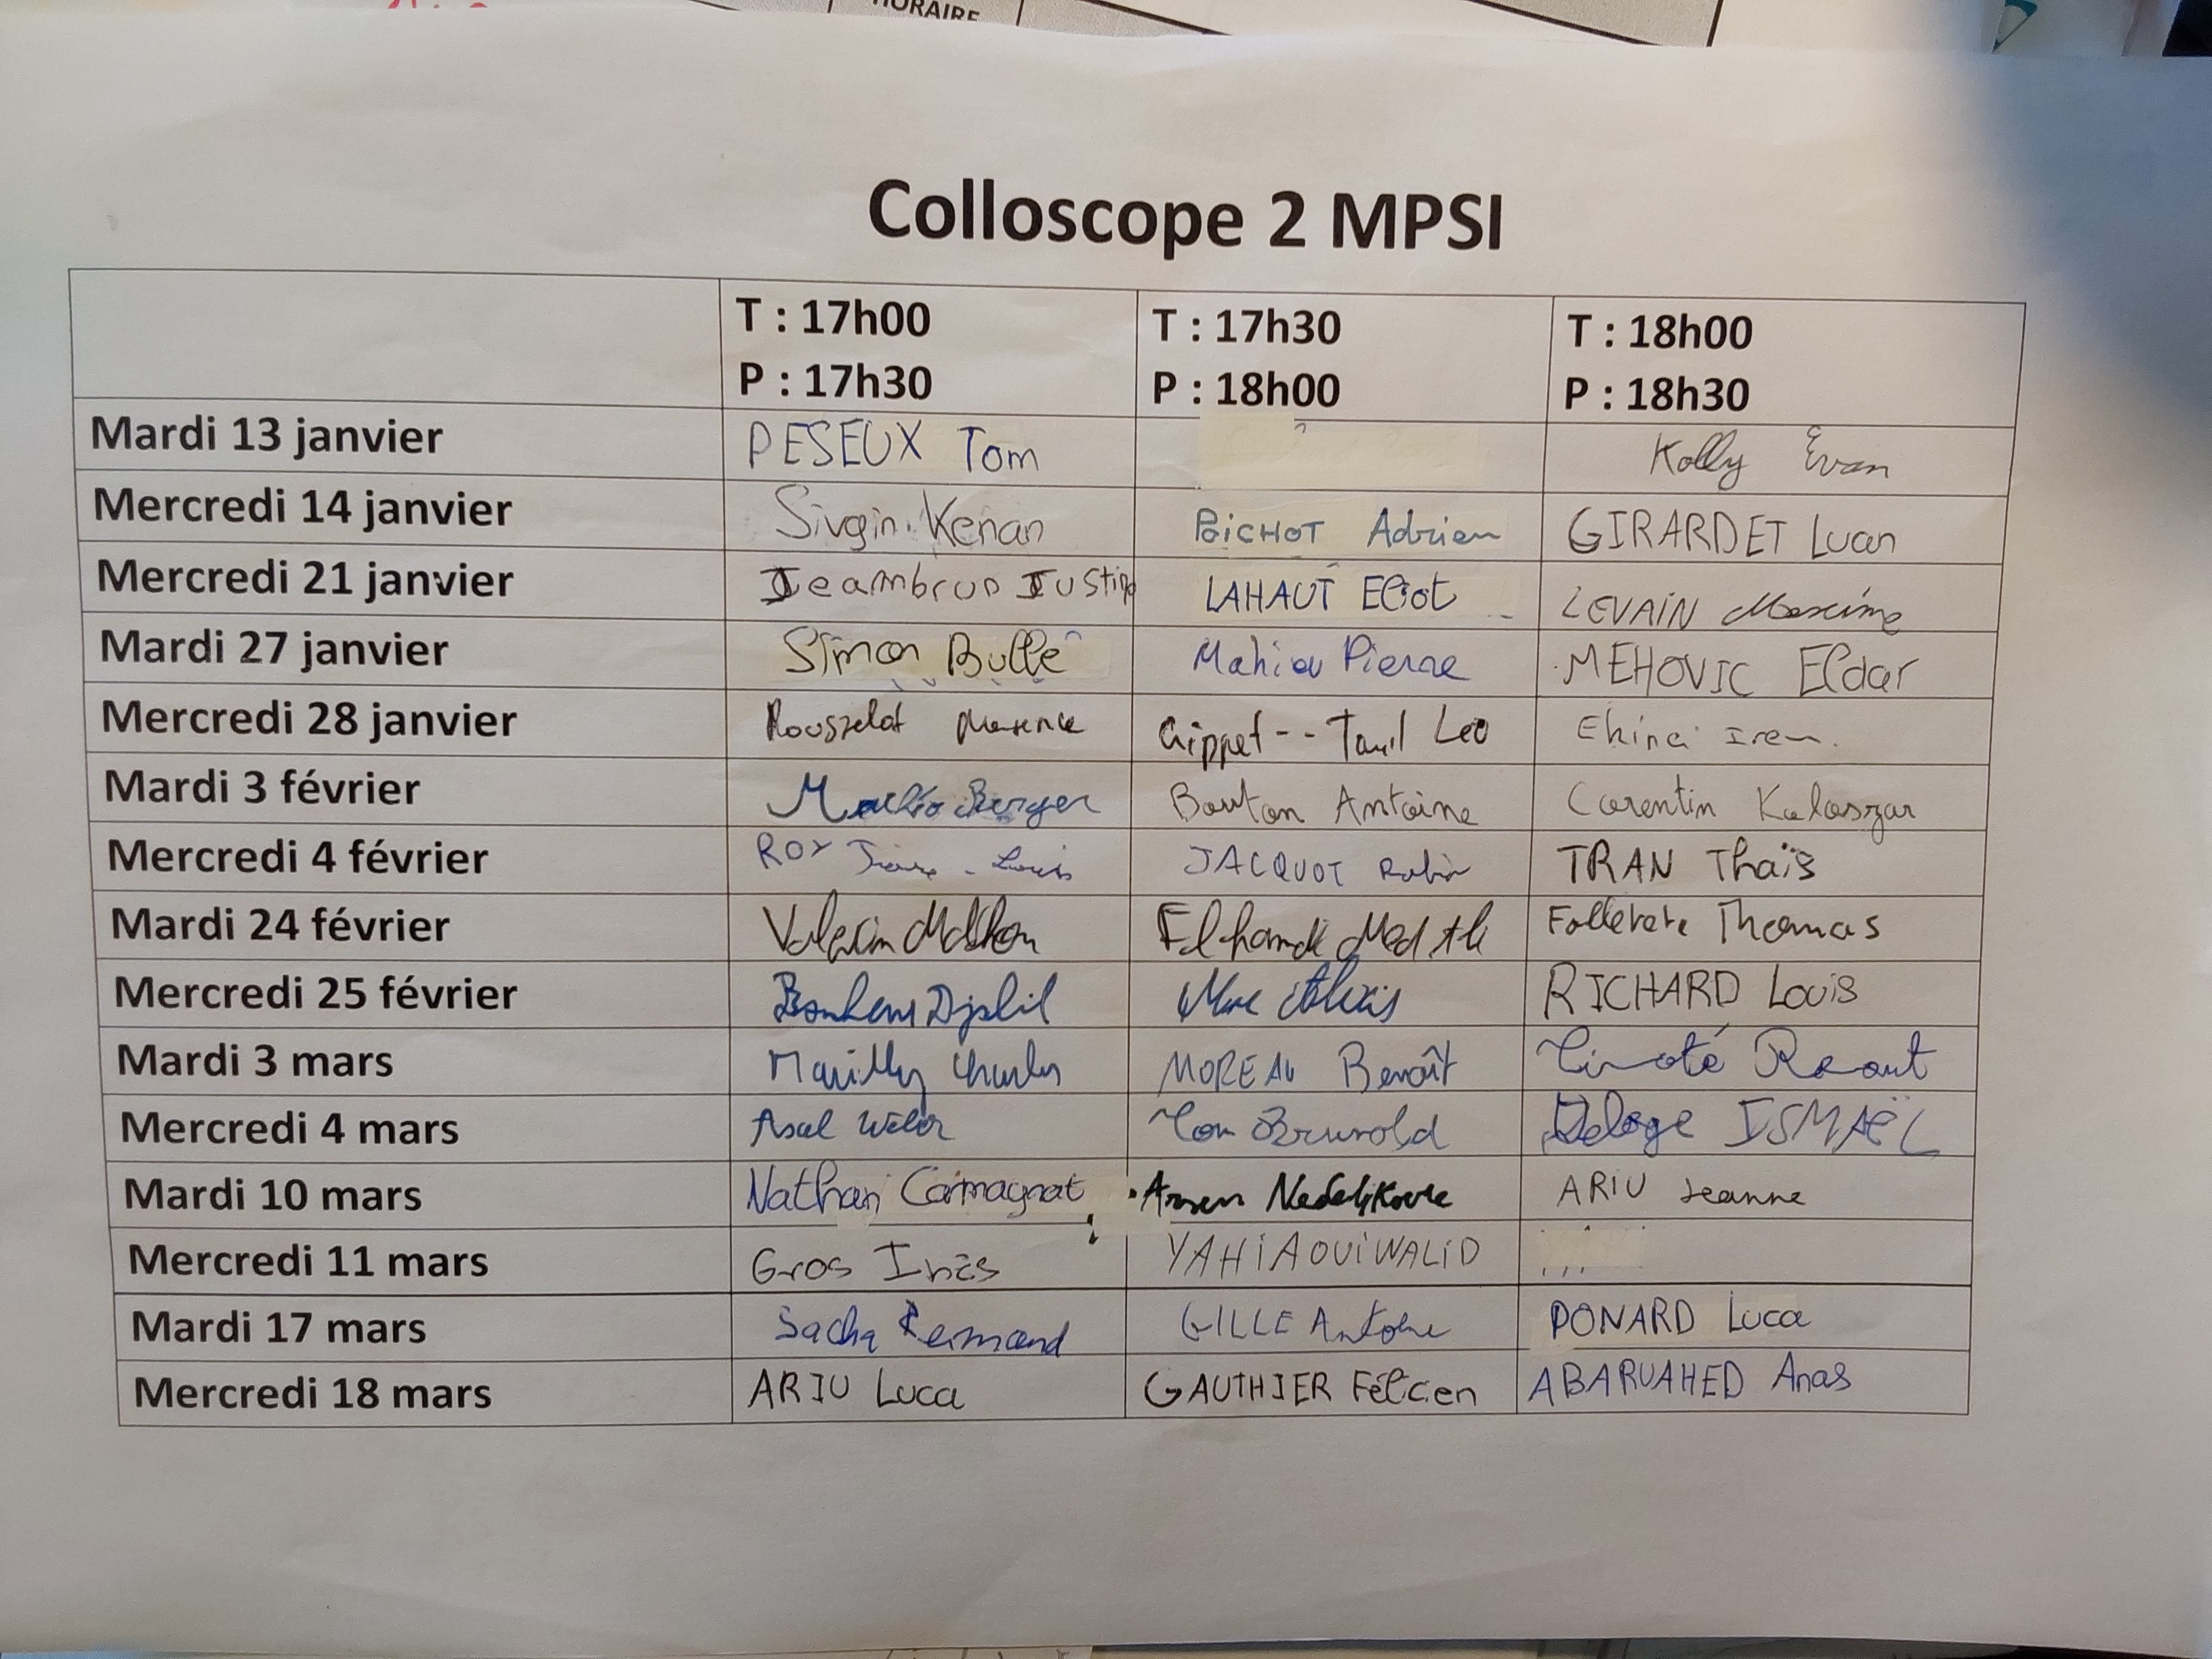 HORAIRE
Colloscope 2 MPSI
T : 17h00 T : 17h30 T : 18h00
P : 17h30 P : 18h00 P : 18h30
Mardi 13 janvier PESEUX Tom Kolly Evan
Mercredi 14 janvier Sivgin Kenan POiCHOT Adrien GIRARDET Luan
Mercredi 21 janvier Jeambrun Justine LAHAUT Eliot LEVAIN Maxime
Mardi 27 janvier Simon Bulle Mahieu Pierre MEHOVIC Eldar
Mercredi 28 janvier Rousselot Maxence Gippet-- Leo Ekinci Irem.
Mardi 3 février Berger Bouton Antoine Corentin Kalaszar
Mercredi 4 février ROY - Louis JACQUOT Robin TRAN Thaïs
Mardi 24 février Valentin Elhamdi Med Thomas
Mercredi 25 février Djalil Alexis RICHARD Louis
Mardi 3 mars Mailly Charles MOREAU Benoît Timoté Raout
Mercredi 4 mars Axel Weber Tom Brunold Deloge ISMAËL
Mardi 10 mars Nathan Carmagnat ARIU Jeanne
Mercredi 11 mars Gros Inès YAHiAOUi WALiD
Mardi 17 mars Sacha GILLE Antoine PONARD Luca
Mercredi 18 mars ARIU Luca GAUTHIER Félicien ABARUAHED Anas